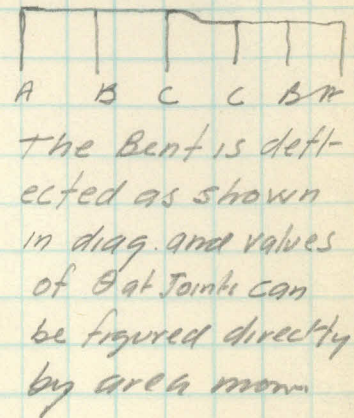 A B C C B A
The Bent is defl-
ected as shown
in diag. and values
of θ at Joints can
be figured directly
by area mom.